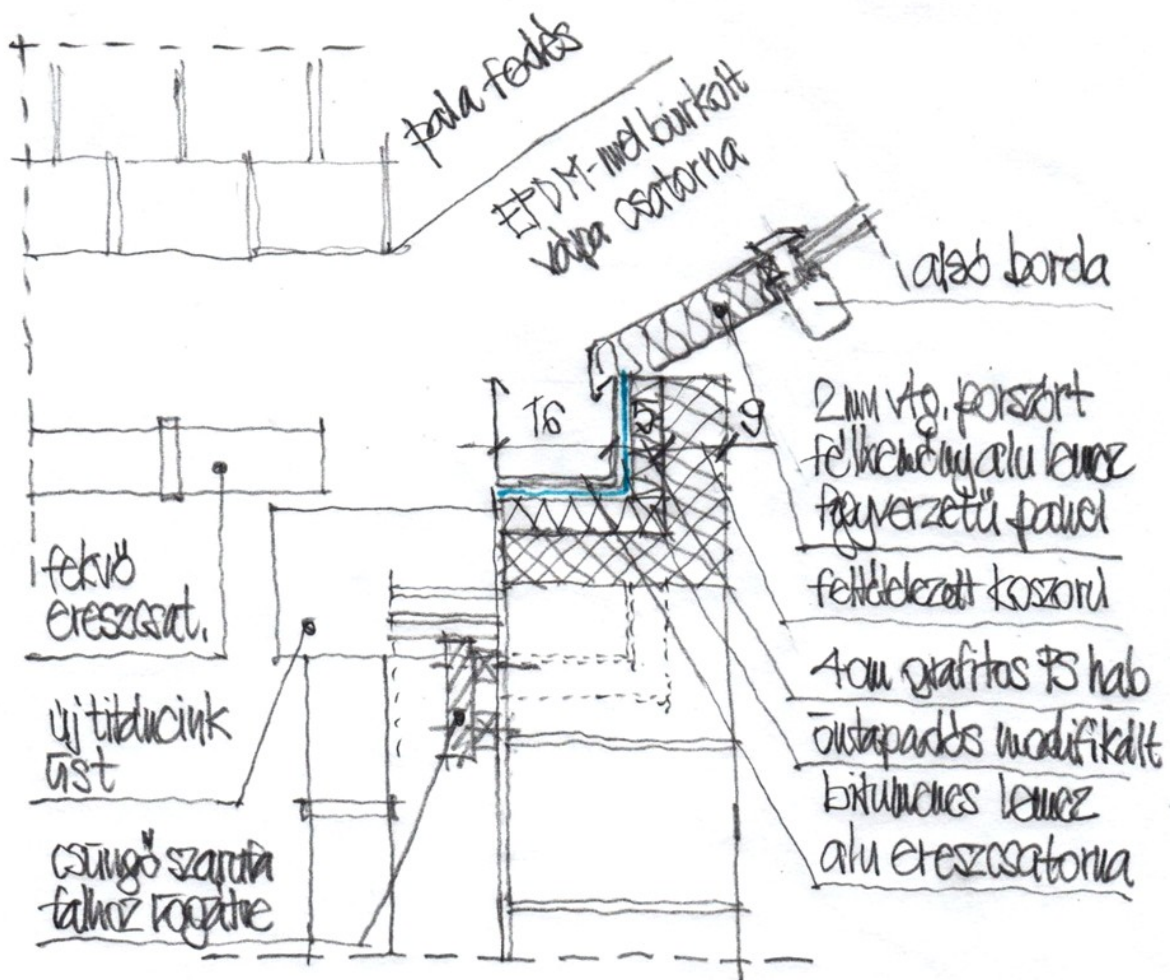 pala fedés
EPDM-mel burkolt
vápa csatorna
alsó borda
16
5
9
2mm vtg. porszórt
félkemény alu lemez
fegyverzetű panel
feltételezett koszorú
4cm grafitos PS hab
öntapadós modifikált
bitumenes lemez
alu ereszcsatorna
fekvő
ereszcsat.
új titáncink
üst
csüngő szarufa
falhoz rögzítve